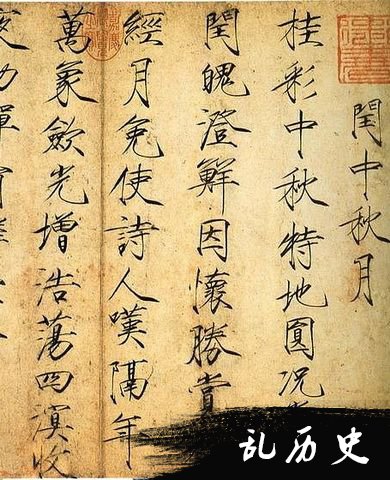 閏中秋月
桂彩中秋特地圓况
閏魄澄鮮因懷勝賞
經月免使詩人嘆隔年
萬象歛光增浩蕩四溟收
乱历史